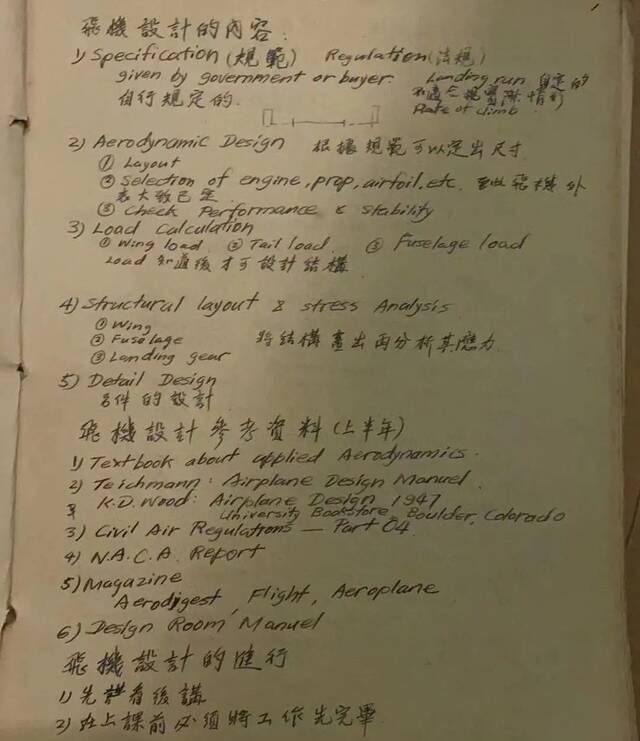 飛機設計的內容.
1) Specification (規範) Regulation (法規)
given by government or buyer. Landing run 自定的
自行規定的. 情形
Rate of climb.
2) Aerodynamic Design 根據規範可以定出尺寸.
① Layout
② Selection of engine, prop, airfoil, etc. 飛機外
表大致已定.
③ Check Performance & Stability
3) Load Calculation
① Wing load ② Tail load. ③ Fuselage load
Load 知道後才可設計結構.
4) Structural layout & stress Analysis
① Wing
② Fuselage 將結構畫出再分析其應力.
③ Landing gear
5) Detail Design
各件的設計.
飛機設計參考資料 (上半年)
1) Textbook about applied Aerodynamics.
2) Teichmann: Airplane Design Manuel.
K.D. Wood: Airplane Design 1947
University Bookstore, Boulder, Colorado
3) Civil Air Regulations — Part 04.
4) N.A.C.A. Report
5) Magazine
Aerodigest, Flight, Aeroplane
6) Design Room Manuel
飛機設計的進行
1) 先 看後講
2) 在上課前必須將工作先完畢.